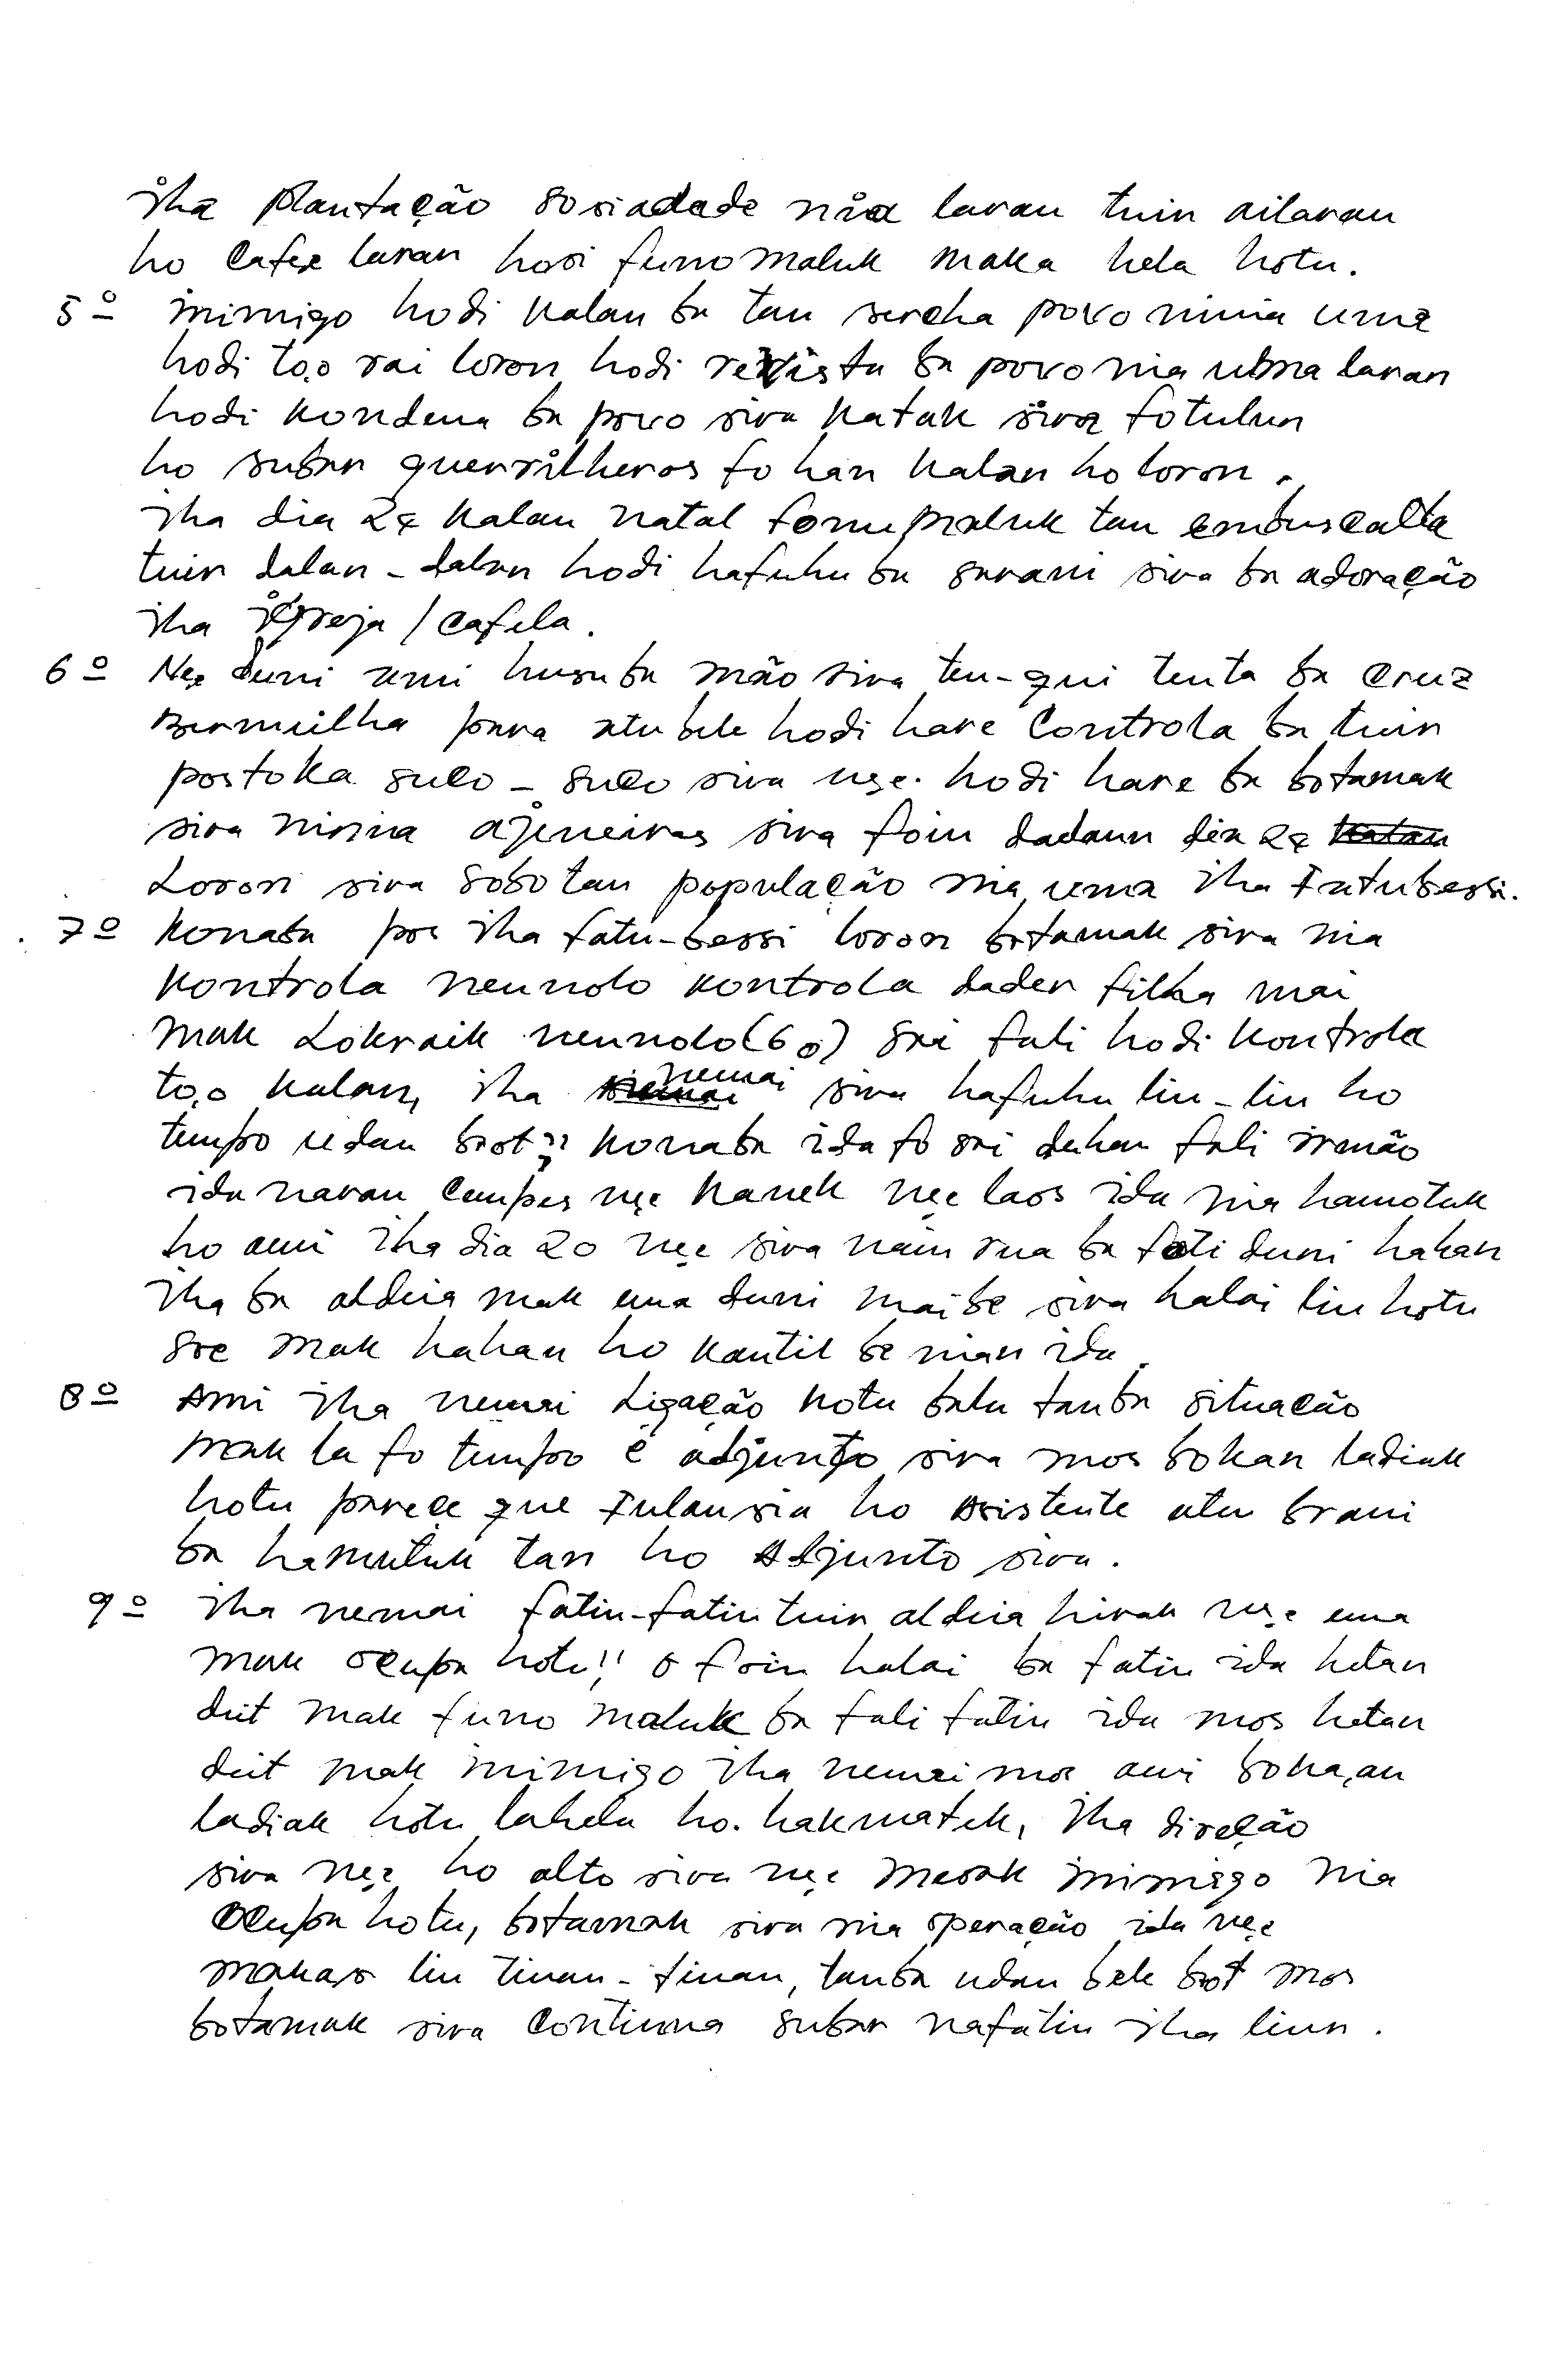 iha plantação sosiadade nia laran tuin ailaran
ho cafee laran hosi funo maluk maka hela hotu.
5º inimigo hodi kalan ba tau sercha povo ninia uma
hodi to,o rai loron hodi revista ba povo nia uma laran
hodi kondena ba povo sira katak sira fo tulun
ho subar querrilheros fo han kalan ho loron.
iha dia 24 kalan natal fonu maluk tau embuscalta
tuin dalan-dalan hodi hafuhu ba sarani sira ba adoração
iha igreja / cafela.
6º Nee duni ami husu ba mão sira ten-qui tenta ba Cruz
Bermeilha para atu bele hodi hare Controla ba tuin
postoka suco-suco sira nee. hodi hare ba botamak
sira ninia ajeneiras sira foin dadaun dia 24 kalan
Loron sira gobo tau população nia uma iha Fatubessi.
7º Konaba pos iha fatu-bessi loron botamak sira nia
kontrola neunolo kontrola dader filha mai
mak Lokraik neunolo (60) sai fali hodi kontrola
to,o kalan, iha nemai sira hafuhu liu-liu ho
tempo udan bot" konaba ida fo sai dehan fali irmão
ida naran Campes nee kanek nee laos ida nia hamotuk
ho ami iha dia 20 nee sira nain rua ba foti duni hahan
iha ba aldeia mak ema duni maibe sira halai liu hotu
soe mak hahan ho kantil be nian ida.
8º Ami iha nemai Ligação kotu balu tanba situação
mak la fo tempo e adjunto sira mos bokan ladiak
hotu parece que Fulansia ho Asistente atu brani
ba hamutuk tan ho Adjunto sira.
9º iha nemai fatin-fatin tuin aldeia hirak nee ema
mak ocupa hotu!! o foin halai ba fatin ida hetan
deit mak funo maluk ba fali fatin ida mos hetan
deit mak inimigo iha nemai mos ami boka,an
ladiak hotu lahela ho. hakmatek, iha direção
sira nee ho alto sira nee mesak inimigo nia
ocupa hotu, botamak sira nia operação ida nee
makas liu tinan-tinan, tanba udan bele bot mos
botamak sira continua subar nafatin iha liur.